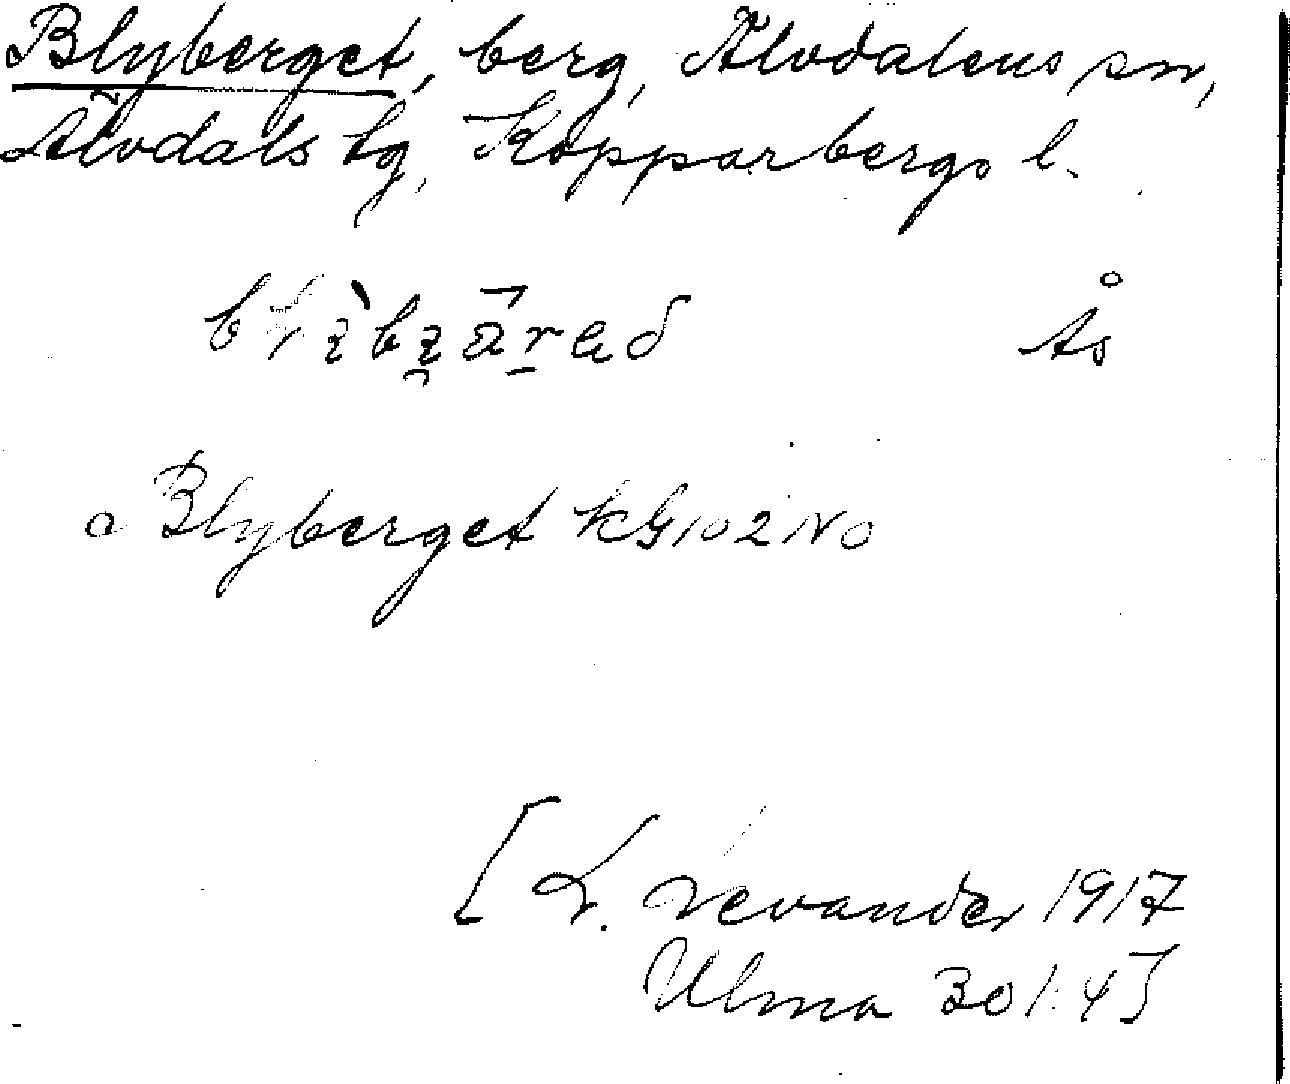 Blyberget, berg, Älvdalens sn,
Älvdals tg, Kopparbergs l.
Ås
a Blyberget KG102NO
[L. Levander 1917
Ulma 301:4]